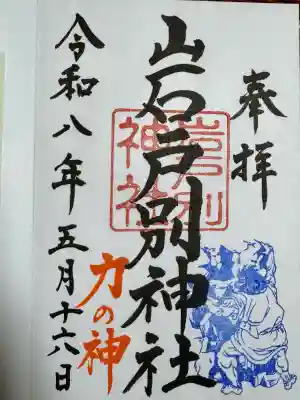 奉拝
岩戸別神社
岩戸別
神社
力の神
令和八年五月十六日